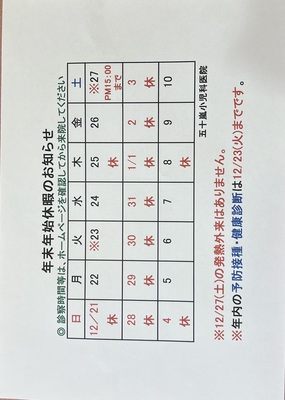 年末年始休暇のお知らせ
◎ 診察時間等は、ホームページを確認してから来院してください
日 月 火 水 木 金 土
12/21 22 ※23 24 25 26 ※27
休 休 PM15:00
まで
28 29 30 31 1/1 2 3
休 休 休 休 休 休 休
4 5 6 7 8 9 10
休 休
五十嵐小児科医院
※12/27(土)の発熱外来はありません。
※年内の予防接種・健康診断は12/23(火)までです。